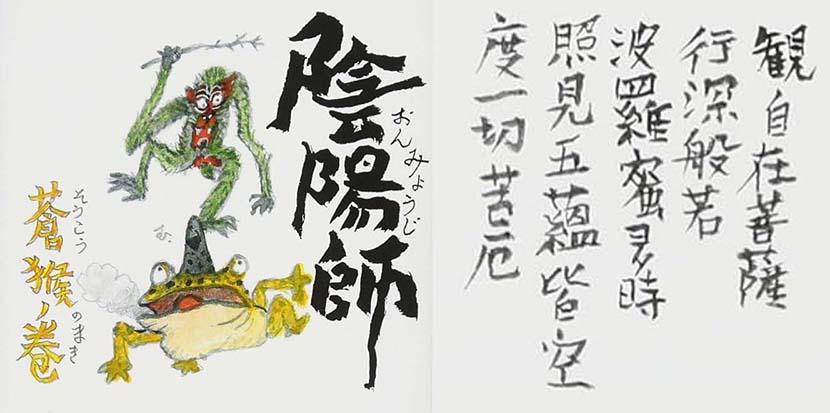 陰陽師
おんみょうじ
蒼猴ノ巻
そうこう
のまき
観自在菩薩
行深般若
波羅蜜多時
照見五蘊皆空
度一切苦厄